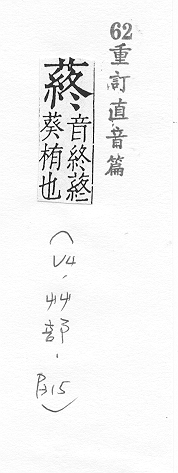 62重訂直音篇
蔠
音終蔠
葵栯也
(V4、艸部、B15)